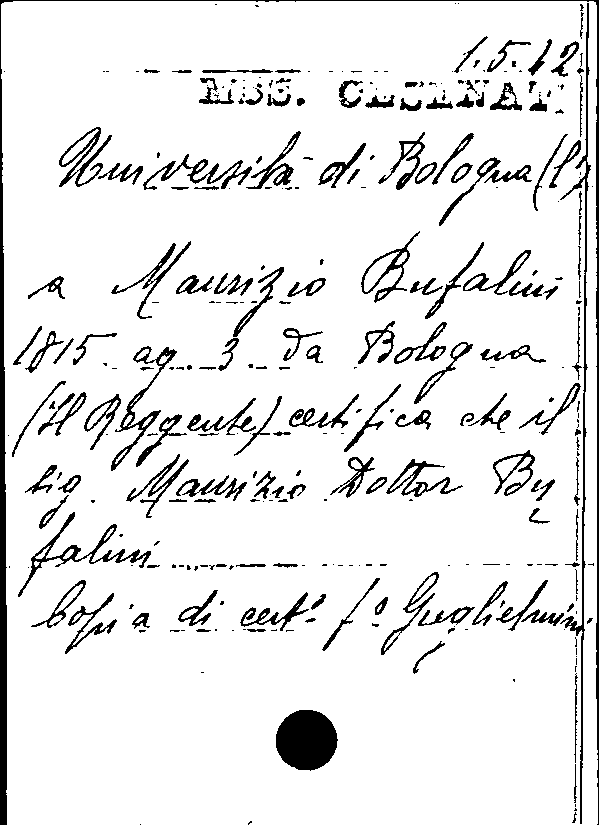 1.5.12
MSS. CESENATI
Università di Bologna (l'
a Maurizio Bufalini
1815. ag. 3. da Bologna
(Il Reggente) certifica che il
sig. Maurizio Dottor Bu
falini
Copia di cert° f° Guglielmini